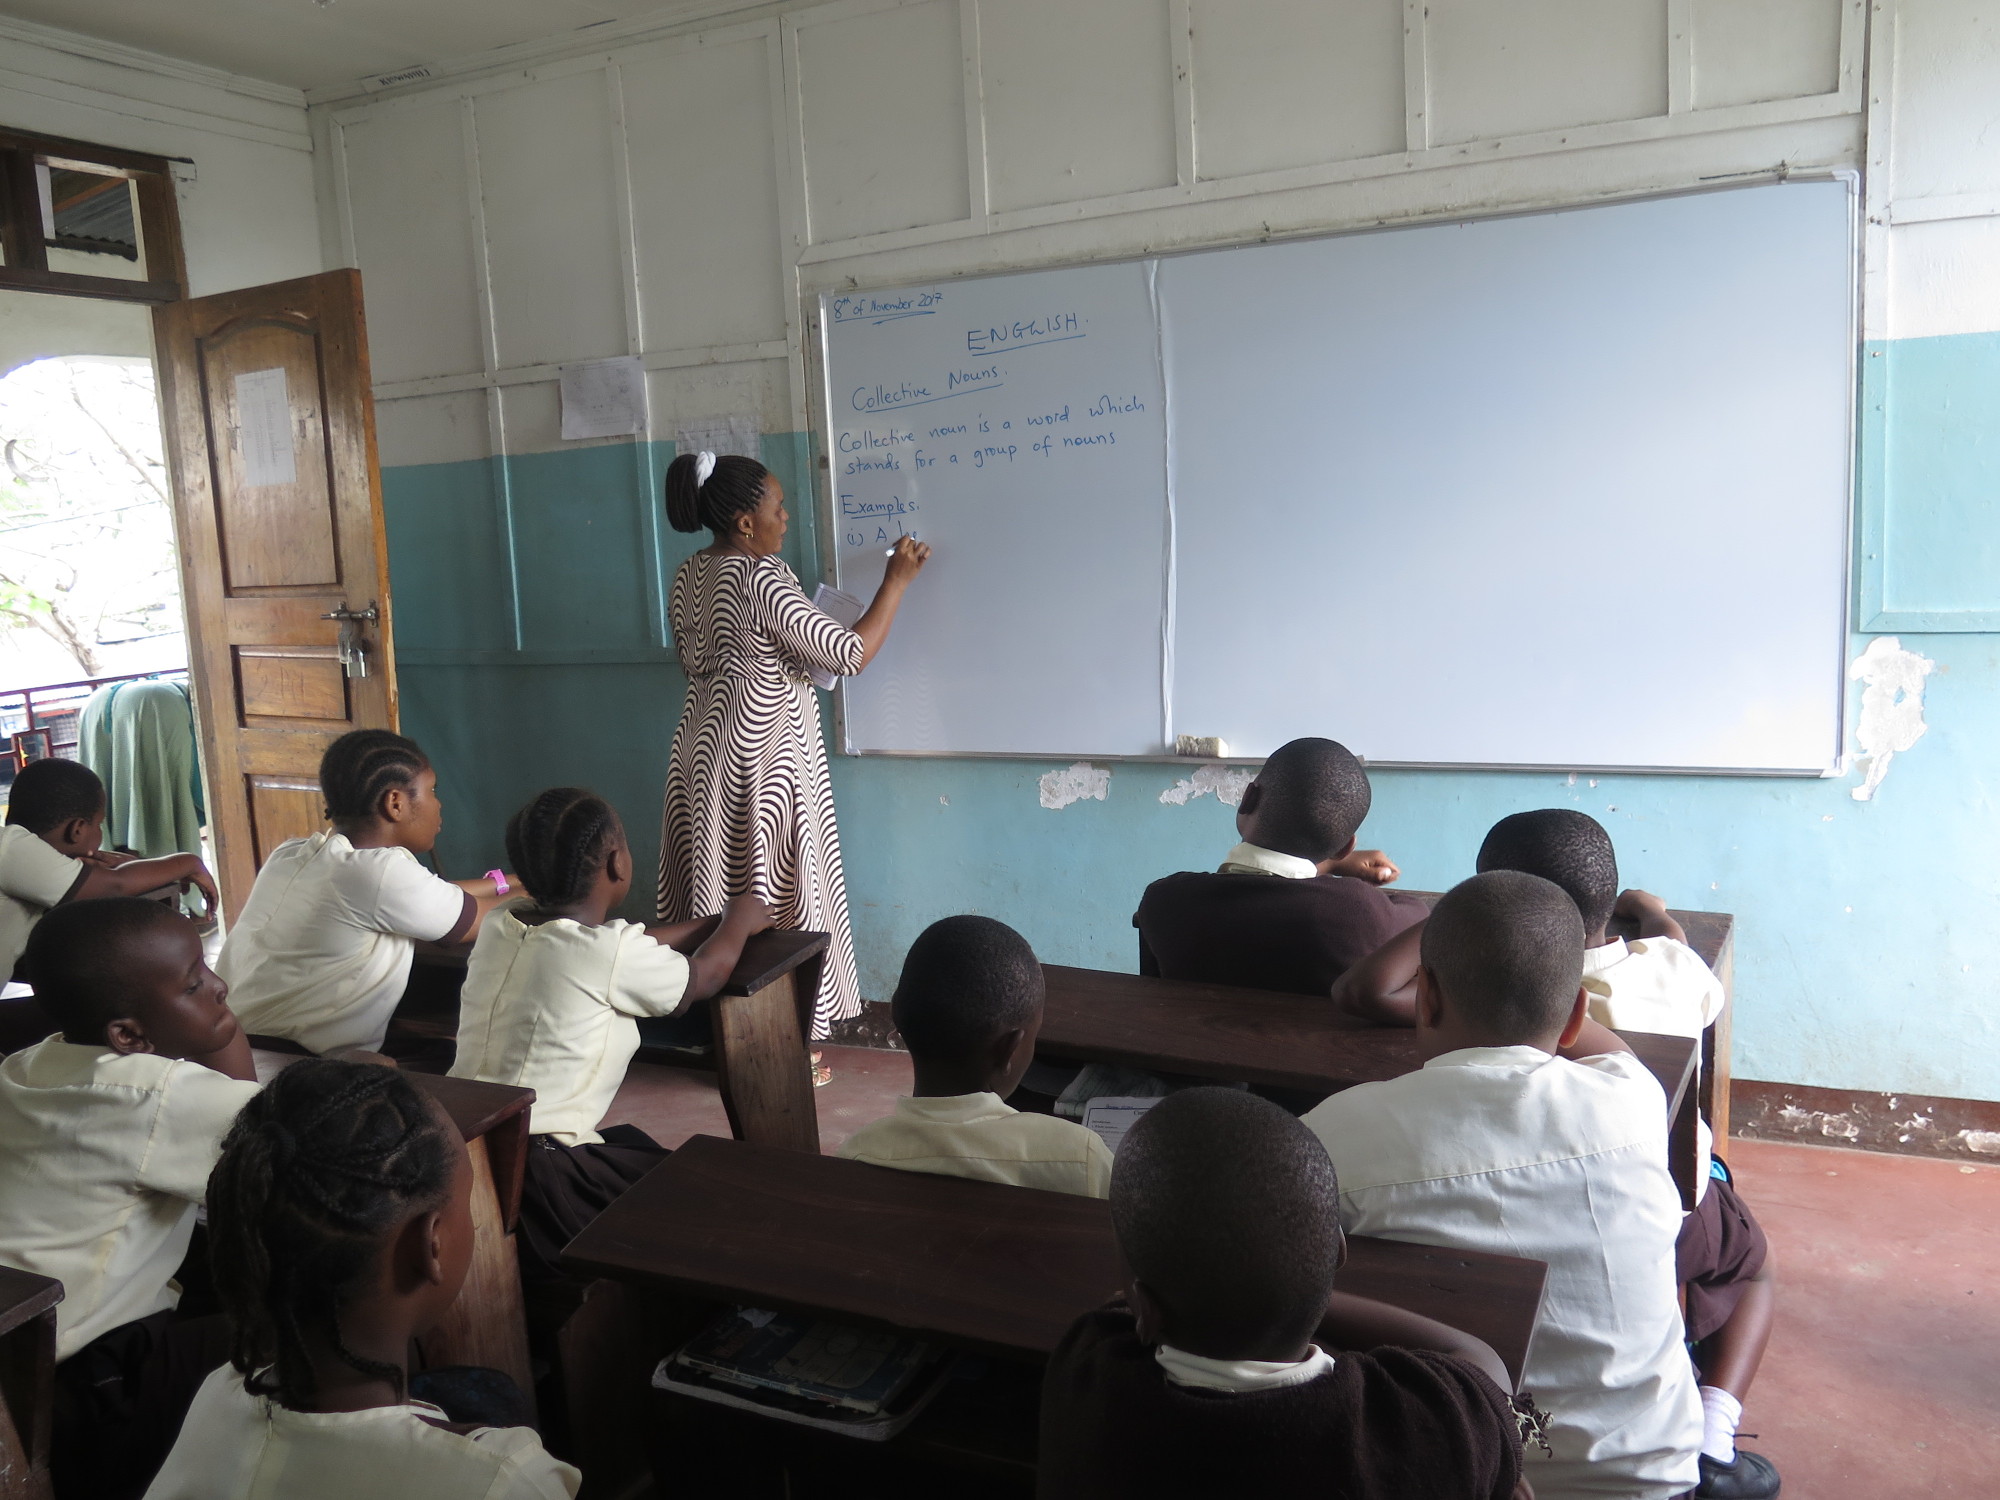 KISWAHILI
8th of November 2017
ENGLISH.
Collective Nouns.
Collective noun is a word which
stands for a group of nouns
Examples.
(i) A